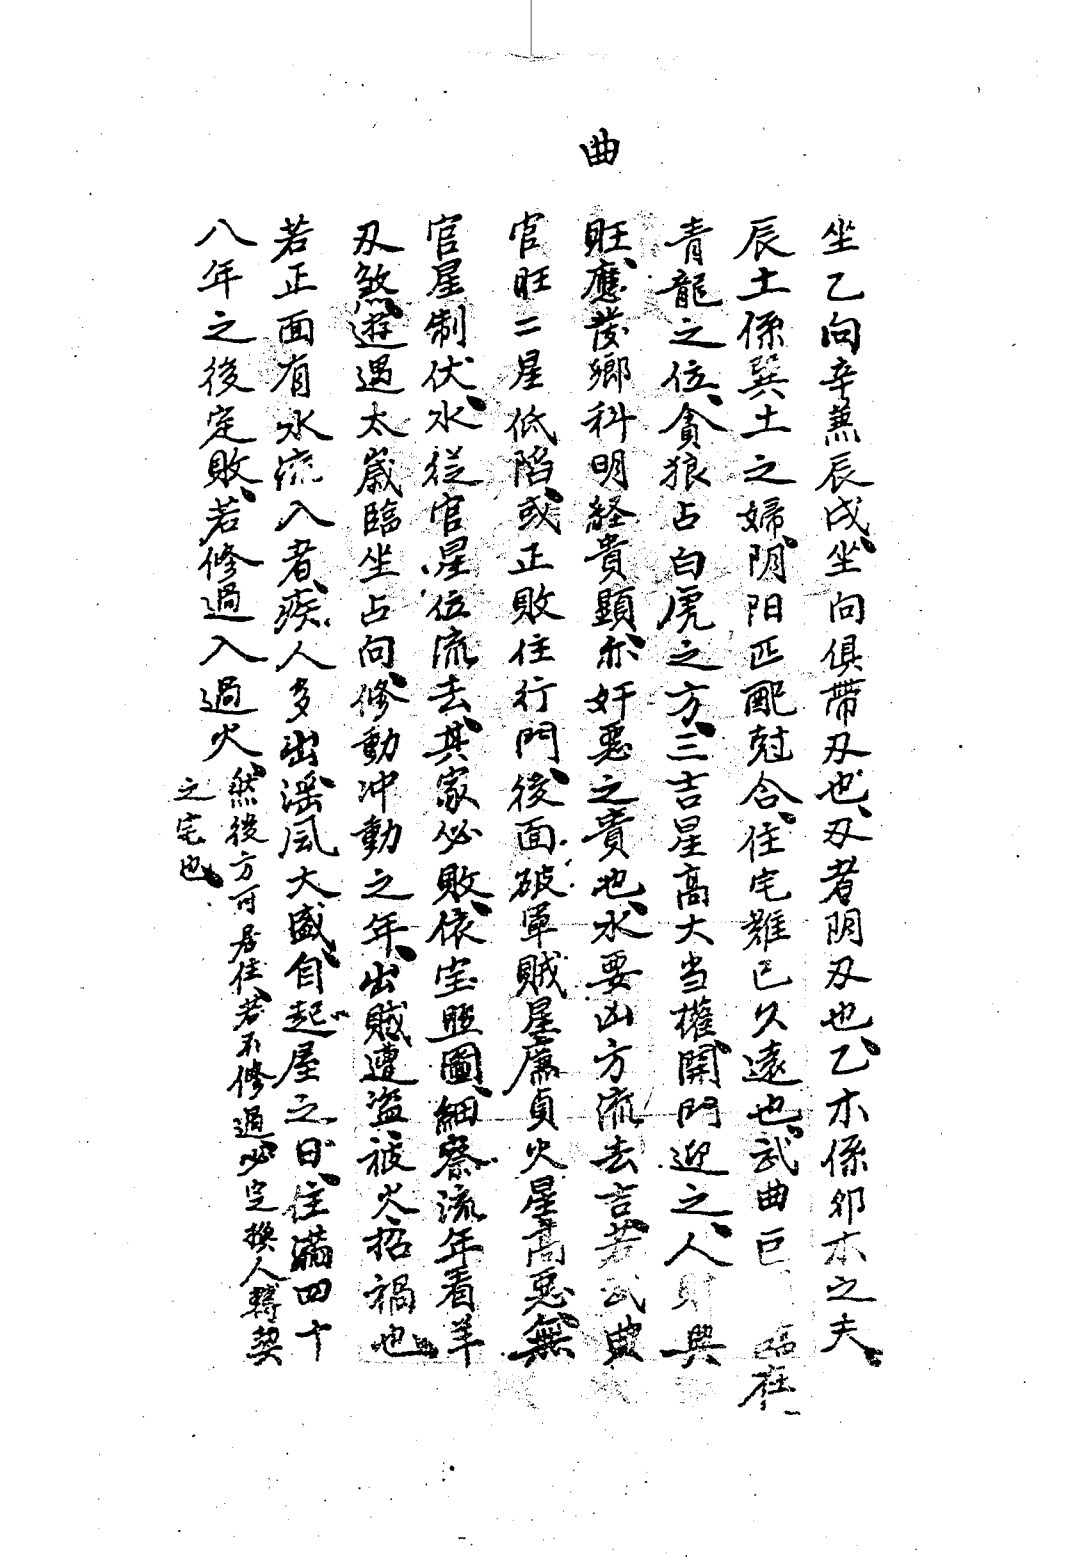 坐乙向辛兼辰戌、坐向俱帶刃也、刃者陰刃也、乙木係卯木之夫、
辰土係巽土之婦、阴阳匹配尅合、住宅難已久遠也、武曲巨 臨在
青龍之位、貪狼占白虎之方、三吉星高大当權、開門迎之、人財興
旺、應發鄉科明経貴顯、亦奸惡之貴也、水要凶方流去吉、若武典
曲
官旺二星低陷、或正敗住行門、後面破軍賊星廉貞火星高惡、無
官星制伏、水従官星位流去、其家必敗、依宝照圖、細察流年看羊
刃煞、遊遇太歲臨坐占向、修動冲動之年、出賊遭盜被火招禍也、
若正面有水流入者、疾人多出滛風大盛、自起屋之日、住滿四十
八年之後定敗、若修過入過火、然後方可居住、若不修過、必定換人轉契
之宅也、